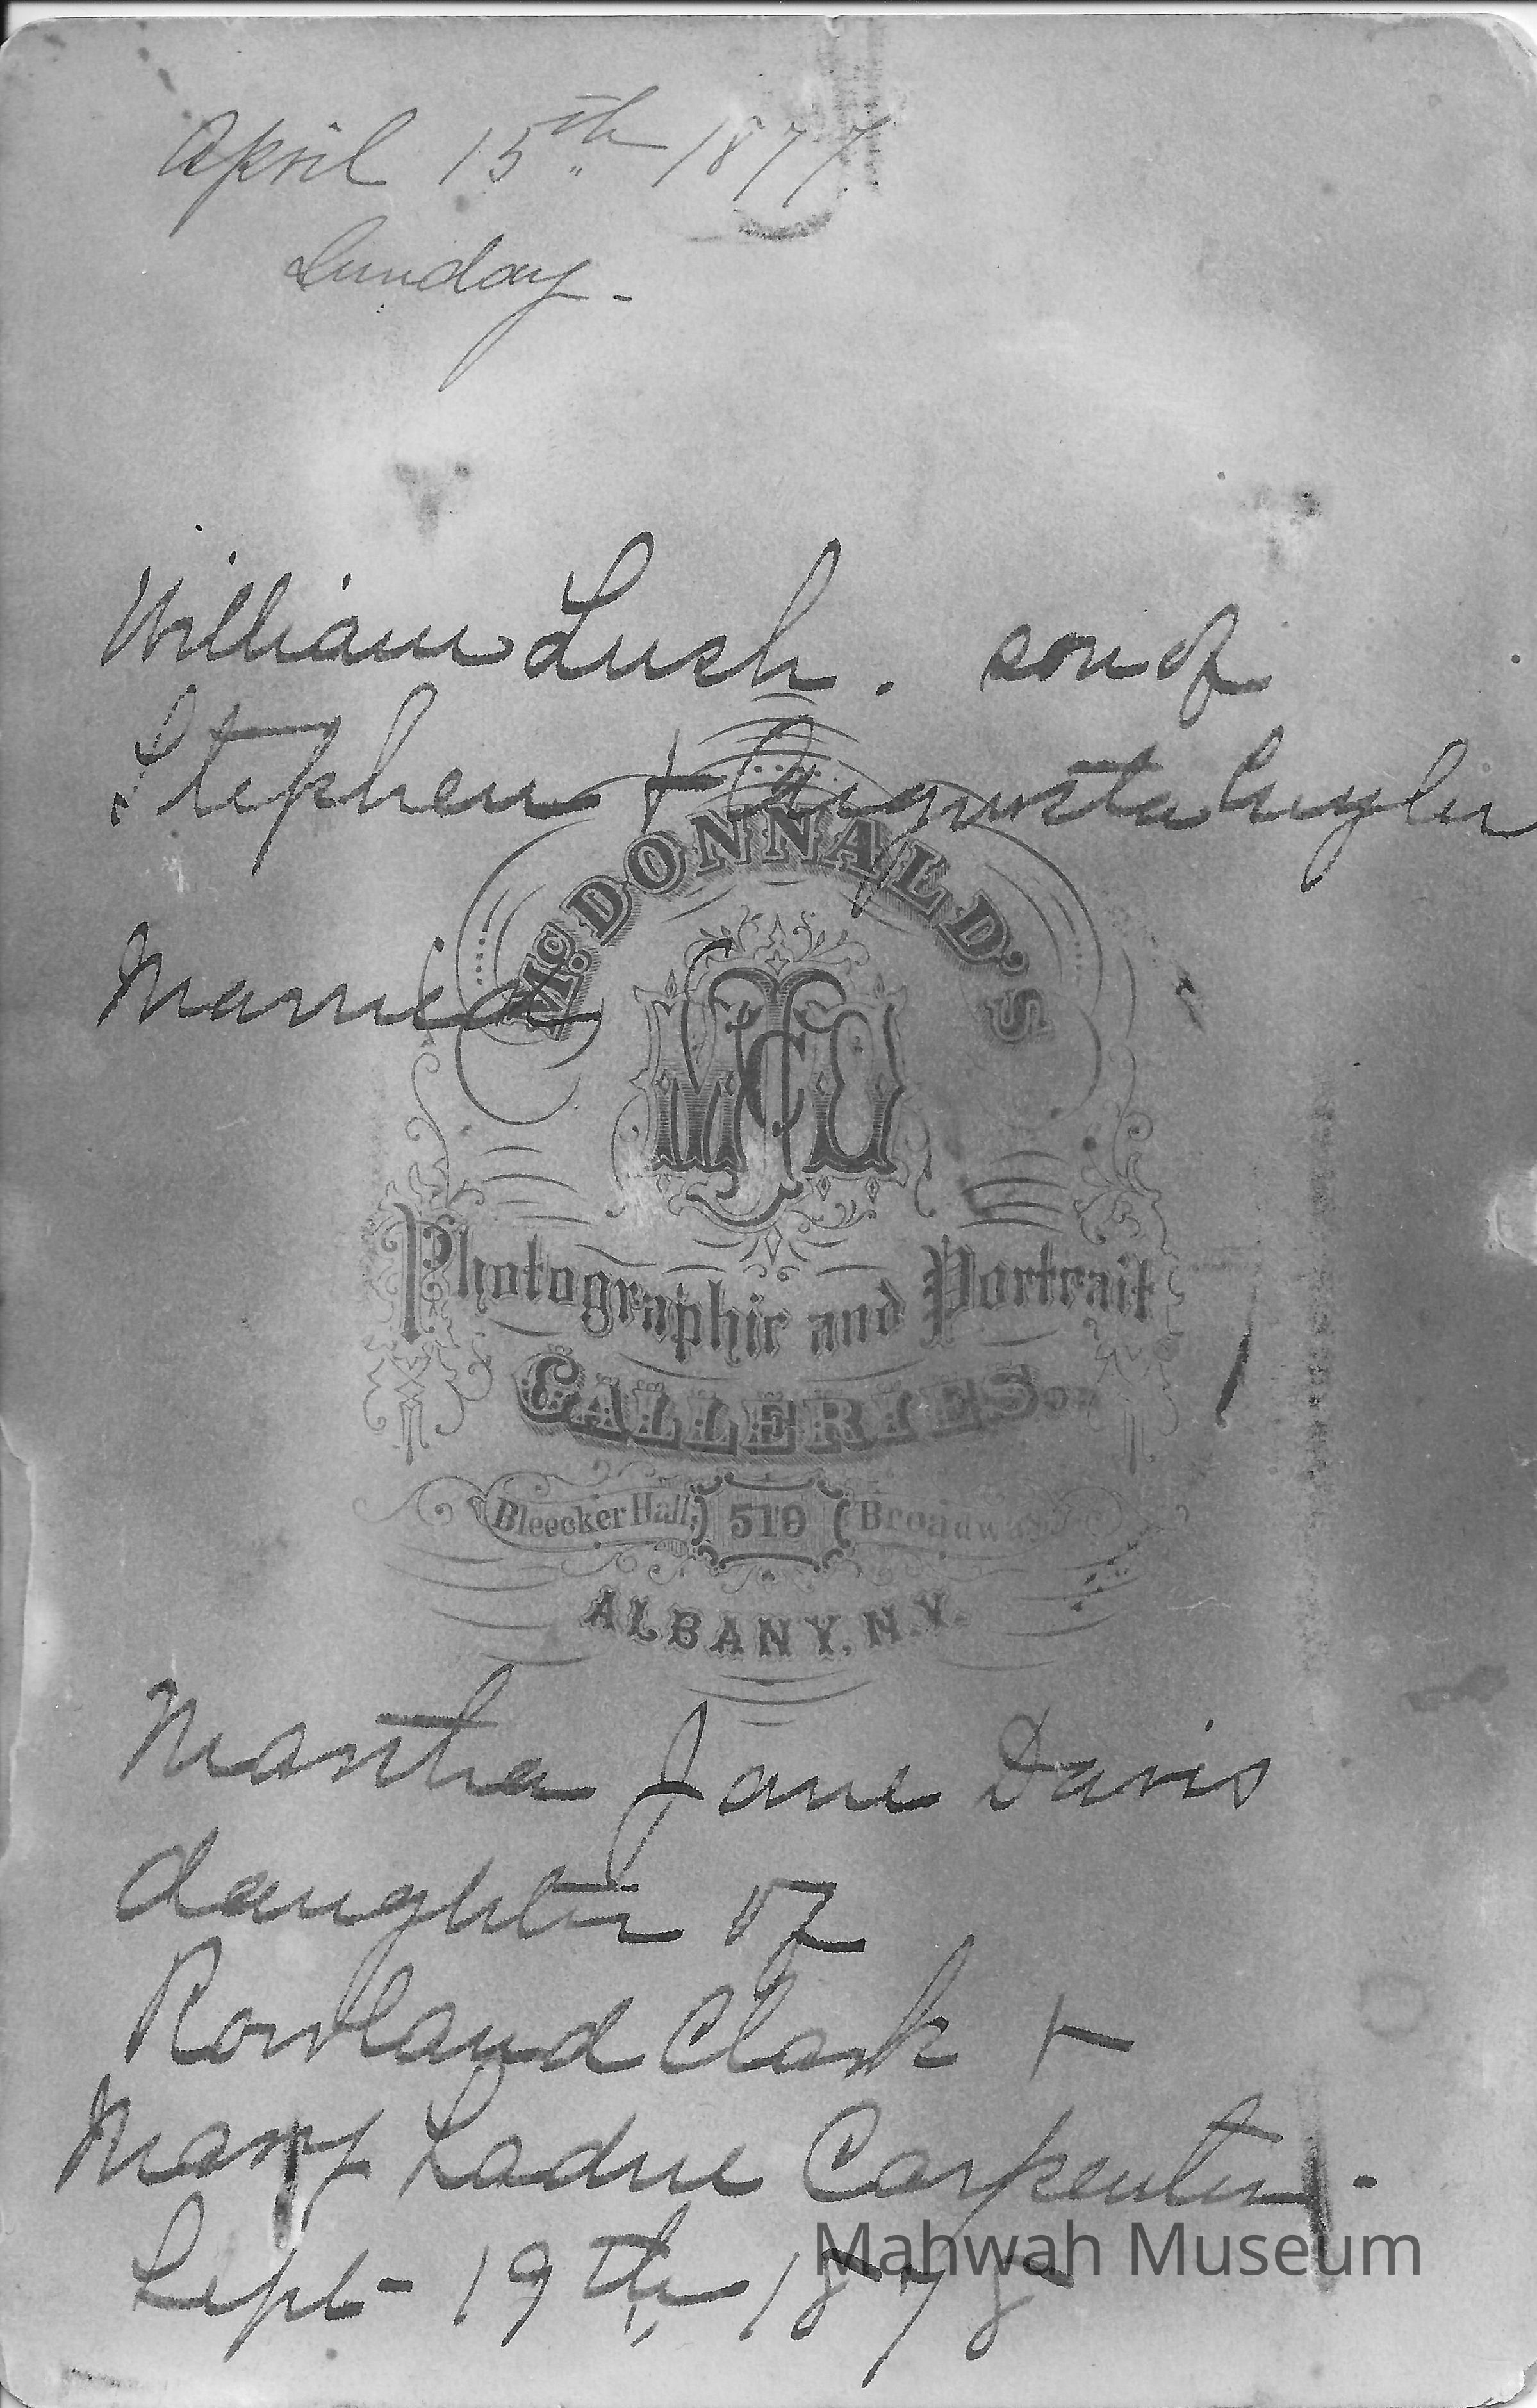 April 15th 1877
Sunday -
William Lush. son of
Stephen + Augusta Cuyler
McDONNALD'S
Married
McD
Photographic and Portrait
GALLERIES.
Bleecker Hall, 519 Broadway
ALBANY, N.Y.
Martha Jane Davis
daughter of
Rowland Clark +
Mary Ladue Carpenter -
Sept - 19th 1878
Mahwah Museum